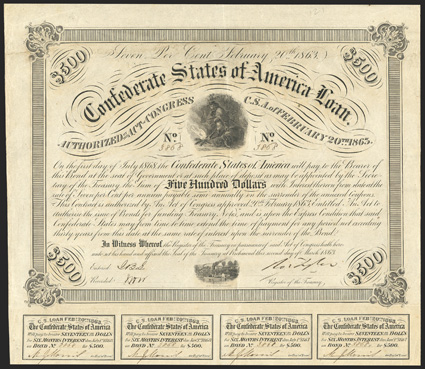 Seven Per Cent February 20th 1863.
$500 $500
Confederate States of America Loan.
AUTHORIZED BY ACT OF CONGRESS C.S.A. OF FEBRUARY 20TH 1863.
No. No.
On the first day of July 1868 the Confederate States of America will pay to the Bearer of
this Bond at the seat of Government or at such place of deposit as may be appointed by the Secretary
of the Treasury, the Sum of Five Hundred Dollars with Interest thereon from date at the
rate of Seven per Cent per annum payable semi annually on the surrender of the annexed Coupons.
This Contract is authorized by the Act of Congress approved 20th February 1863 Entitled An Act to
Authorize the issue of Bonds for funding Treasury Notes, and is upon the Express Condition that said
Confederate States may from time to time extend the time of payment for any period not exceeding
thirty years from this date at the same rate of interest
In Witness Whereof the Register of the Treasury in pursuance of said Act of Congress hath here
unto set his hand and affixed the Seal of the Treasury at Richmond this second day of March 1863.
Entered
Recorded
Register of the Treasury
$500 $500
C.S. LOAN FEB. 20TH 1863. C.S. LOAN FEB. 20TH 1863. C.S. LOAN FEB. 20TH 1863. C.S. LOAN FEB. 20TH 1863.
The Confederate States of America The Confederate States of America The Confederate States of America The Confederate States of America
Will pay to bearer SEVENTEEN 50/100 DOLLS. Will pay to bearer SEVENTEEN 50/100 DOLLS. Will pay to bearer SEVENTEEN 50/100 DOLLS. Will pay to bearer SEVENTEEN 50/100 DOLLS.
SIX MONTHS INTEREST SIX MONTHS INTEREST SIX MONTHS INTEREST SIX MONTHS INTEREST
BOND No. for $500. BOND No. for $500. BOND No. for $500. BOND No. for $500.